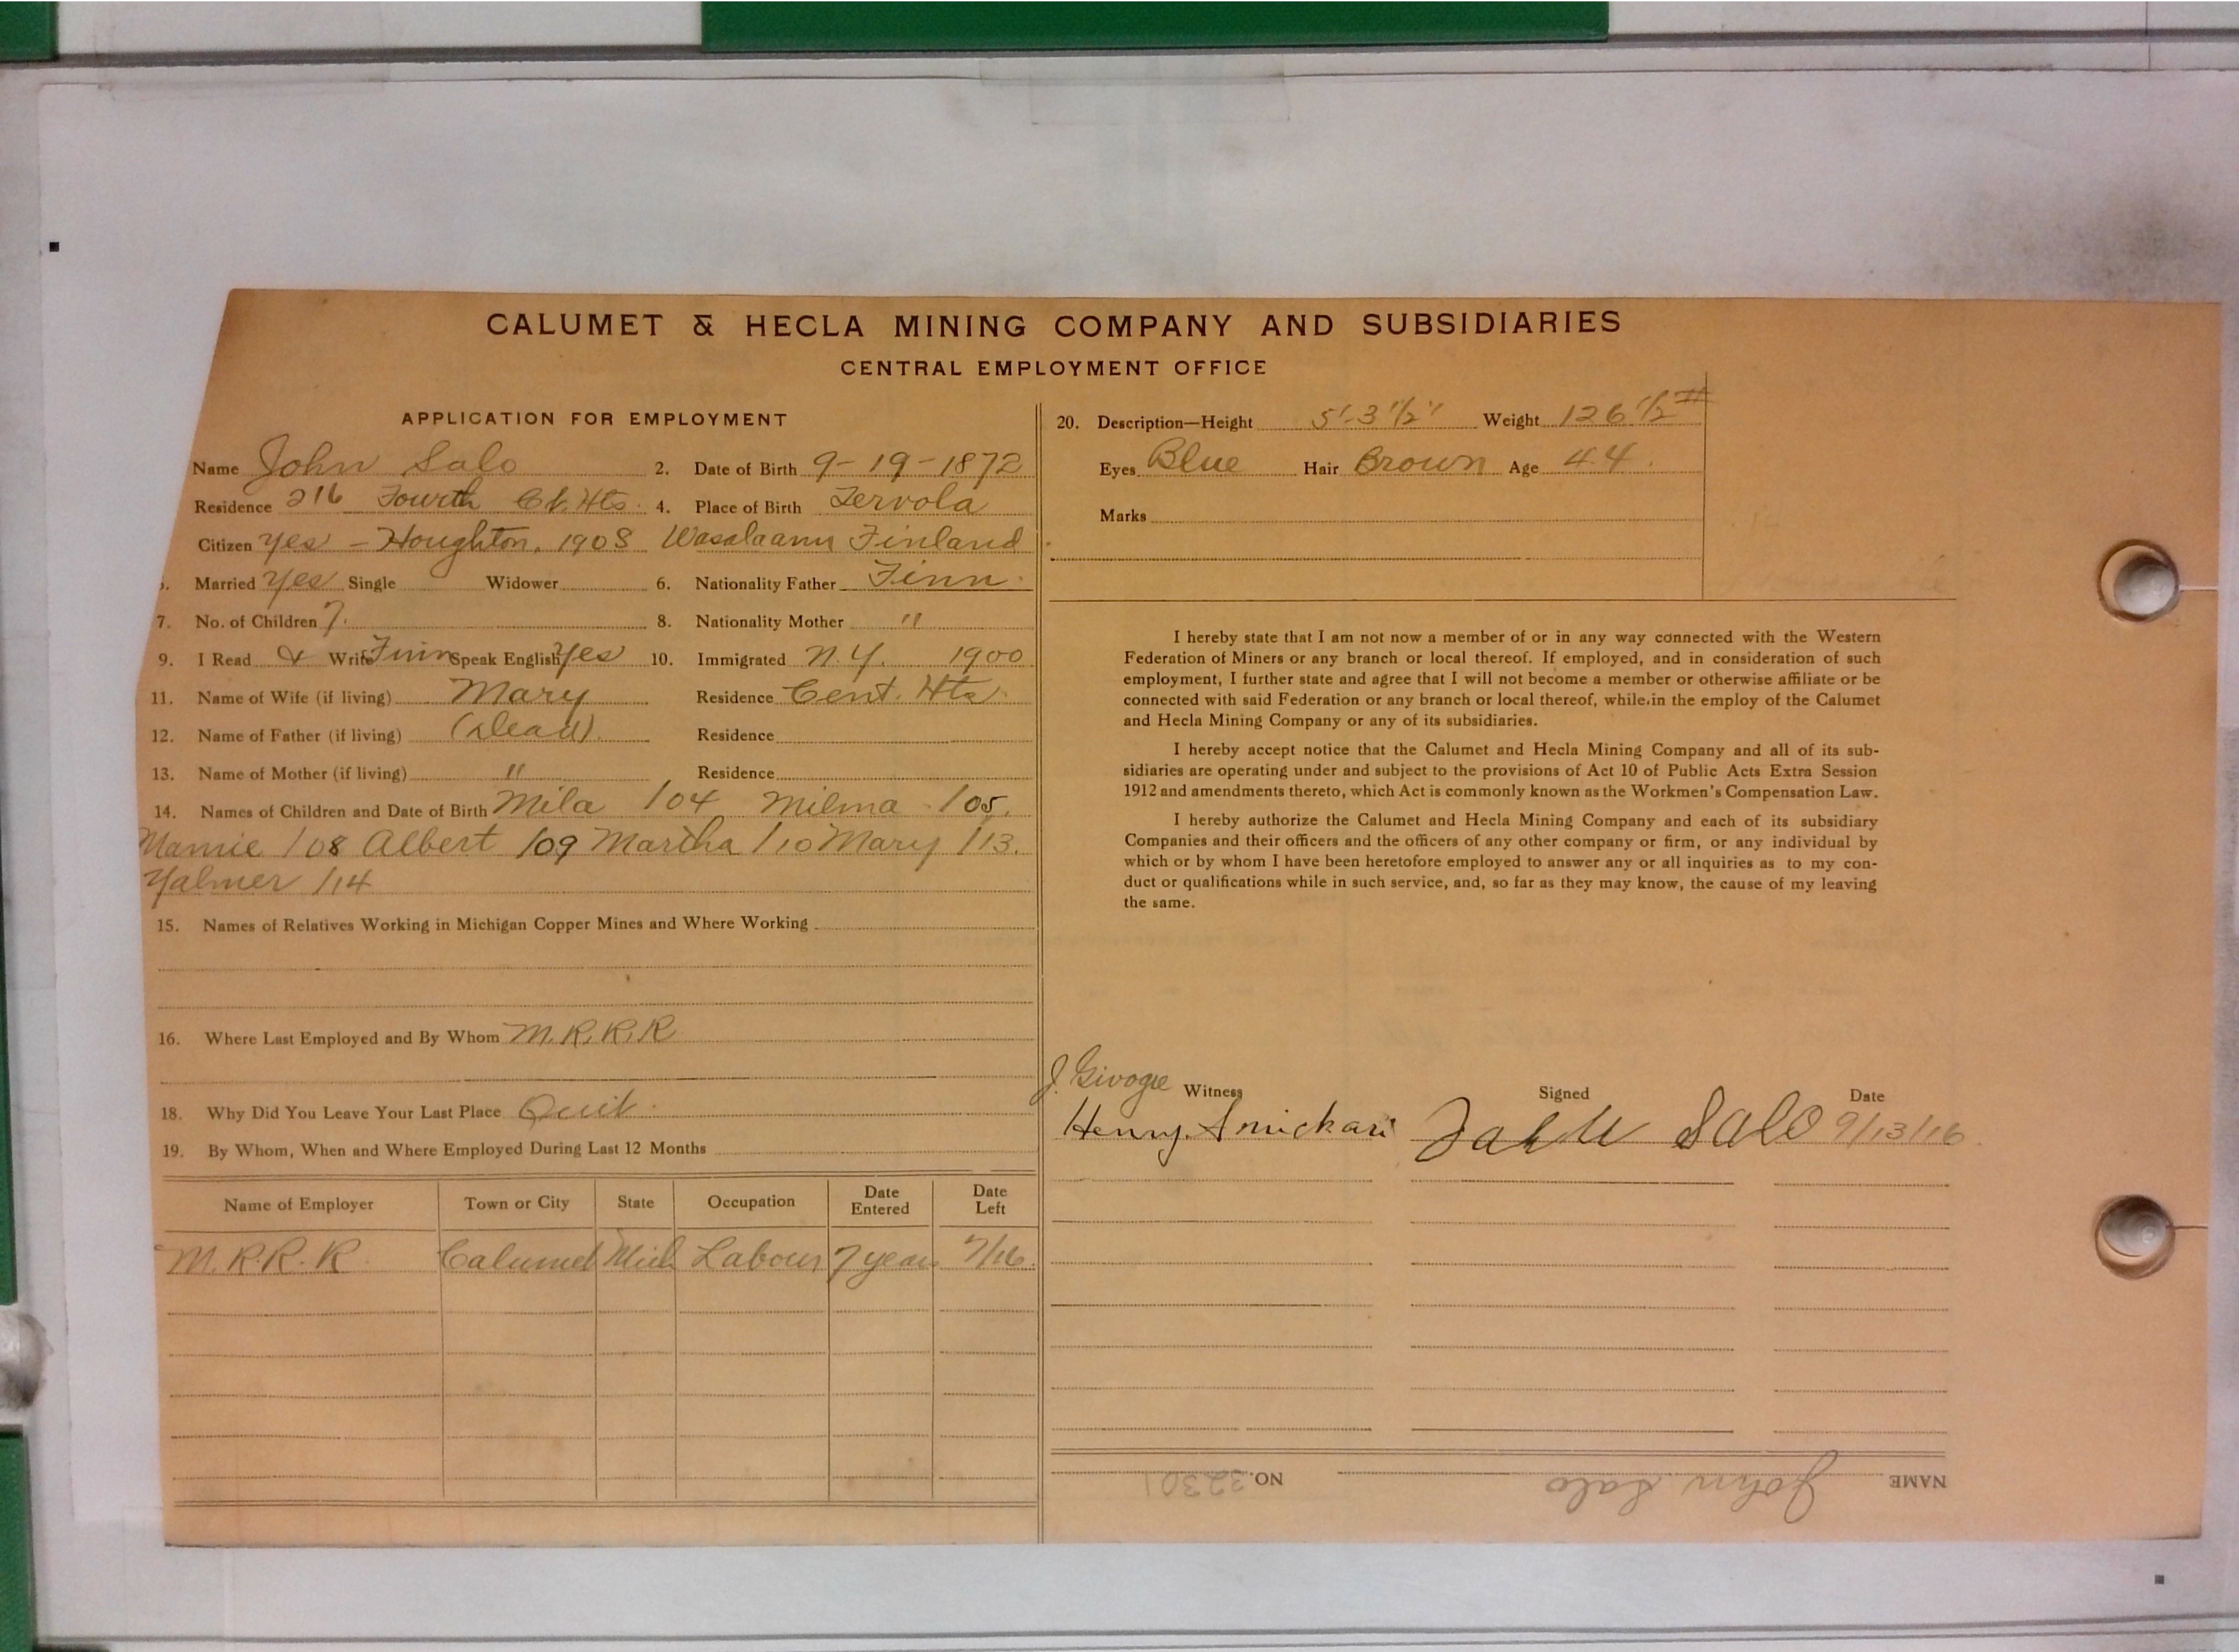 CALUMET & HECLA MINING COMPANY AND SUBSIDIARIES
CENTRAL EMPLOYMENT OFFICE
APPLICATION FOR EMPLOYMENT
Name John Salo 2. Date of Birth 9-19-1872
Residence 216 Fourth C. Hts. 4. Place of Birth Tervola
Citizen yes - Houghton, 1908 Wasalaani Finland
5. Married Yes Single Widower 6. Nationality Father Finn.
7. No. of Children 7. 8. Nationality Mother "
9. I Read & Write Finn Speak English Yes 10. Immigrated N.Y. 1900
11. Name of Wife (if living) Mary Residence Cent. Hts.
12. Name of Father (if living) (Dead). Residence
13. Name of Mother (if living) " Residence
14. Names of Children and Date of Birth Mila /04 Milma /05.
Mamie /08 Albert /09 Martha /10 Mary /13.
Yalmer /14
15. Names of Relatives Working in Michigan Copper Mines and Where Working
16. Where Last Employed and By Whom M.R.R.R
18. Why Did You Leave Your Last Place Quit.
19. By Whom, When and Where Employed During Last 12 Months
Name of Employer Town or City State Occupation Date Entered Date Left
M.R.R.R. Calumet Mich Labour 7 years 7/16.
20. Description—Height 5'-3 1/2" Weight 126 1/2 #
Eyes Blue Hair Brown Age 44.
Marks
I hereby state that I am not now a member of or in any way connected with the Western
Federation of Miners or any branch or local thereof. If employed, and in consideration of such
employment, I further state and agree that I will not become a member or otherwise affiliate or be
connected with said Federation or any branch or local thereof, while in the employ of the Calumet
and Hecla Mining Company or any of its subsidiaries.
I hereby accept notice that the Calumet and Hecla Mining Company and all of its sub-
sidiaries are operating under and subject to the provisions of Act 10 of Public Acts Extra Session
1912 and amendments thereto, which Act is commonly known as the Workmen's Compensation Law.
I hereby authorize the Calumet and Hecla Mining Company and each of its subsidiary
Companies and their officers and the officers of any other company or firm, or any individual by
which or by whom I have been heretofore employed to answer any or all inquiries as to my con-
duct or qualifications while in such service, and, so far as they may know, the cause of my leaving
the same.
J. Givogre Witness Signed Date
Henry Smickari John Salo 9/13/16.
NAME John Salo NO. 32301